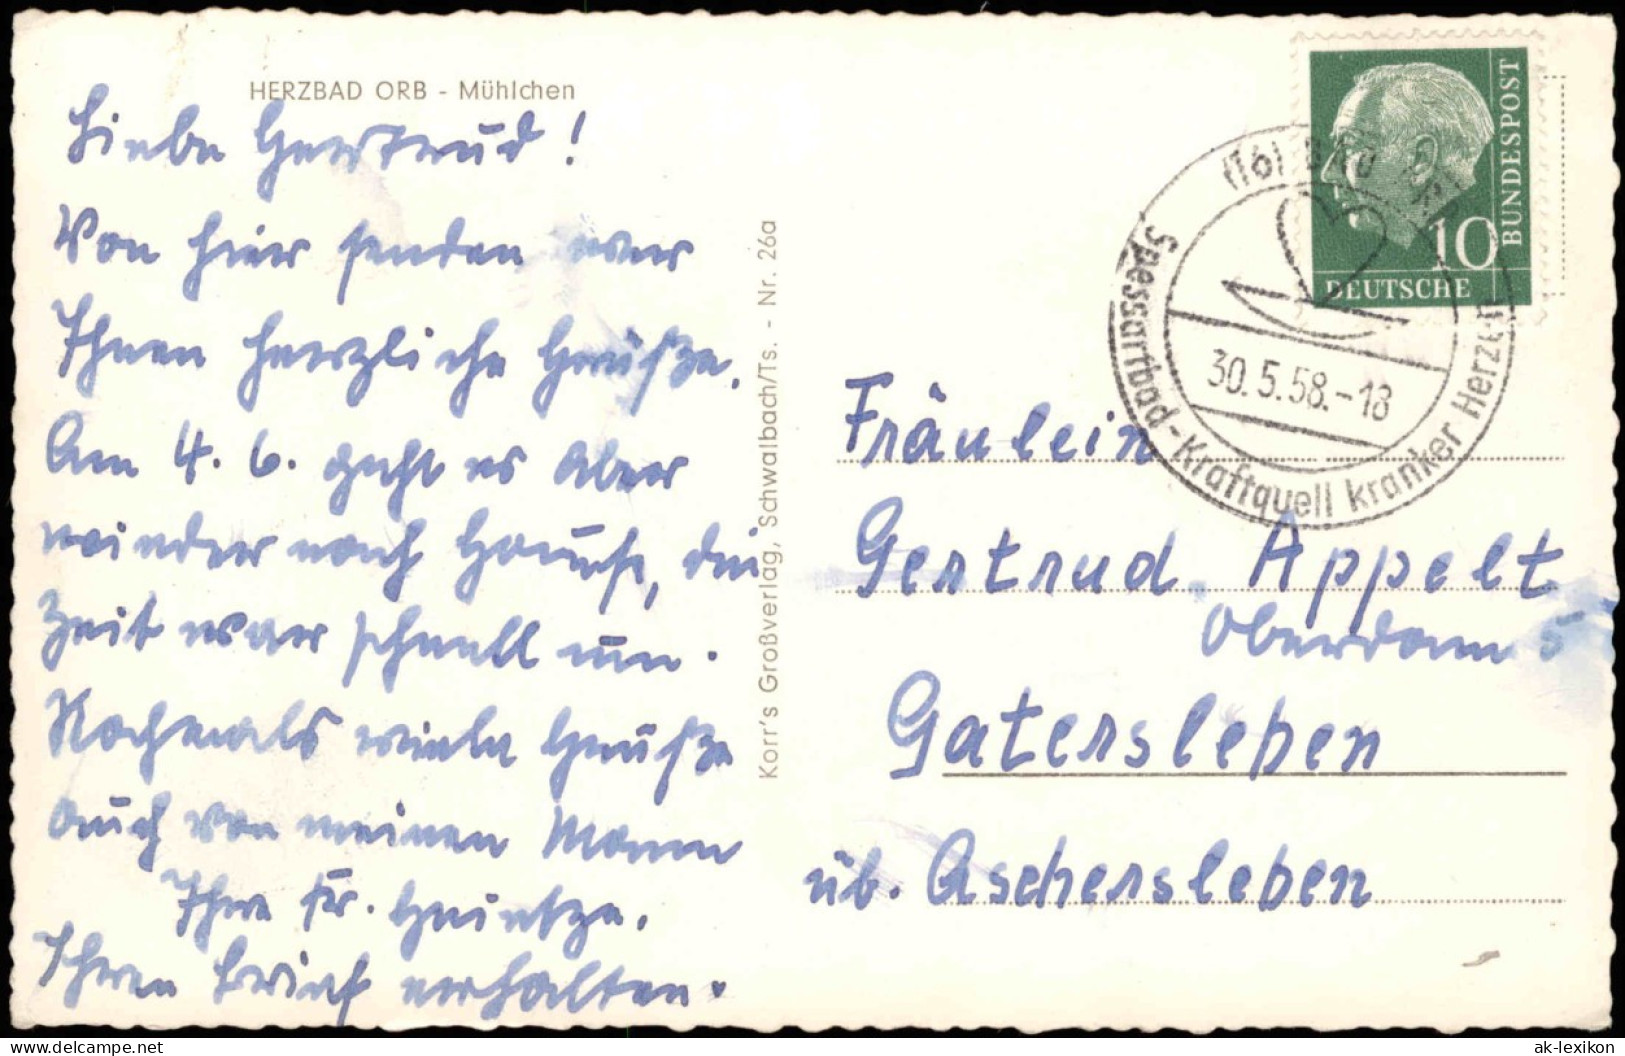 HERZBAD ORB - Mühlchen
Liebe Gertrud!
Von hier senden wir
Ihnen herzliche Grüße.
Am 4. 6. geht es aber
wieder nach Hause, die
Zeit war schnell um.
Nochmals viele Grüße
auch von meinen Mann
Ihre Fr. Heintze.
Ihren Brief erhalten.
Korr's Großverlag, Schwalbach/Ts. - Nr. 26a
(16) BAD ORB
Spessartbad-Kraftquell kranker Herzen
30.5.58.-18
10
DEUTSCHE
BUNDESPOST
Fräulein
Gertrud Appelt
Oberdorn 5
Gatersleben
üb. Aschersleben
www.delcampe.net
ak-lexikon